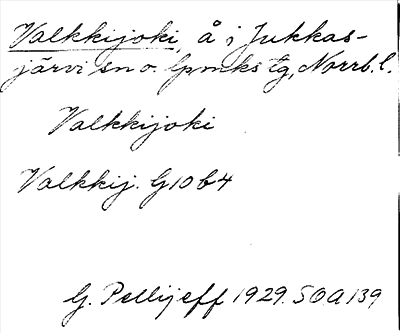 Valkkijoki, å i Jukkas-
järvi sn o. lpmks tg, Norrb. l.
Valkkijoki
Valkkij. G10b4
G. Pellijeff 1929. SOA 139